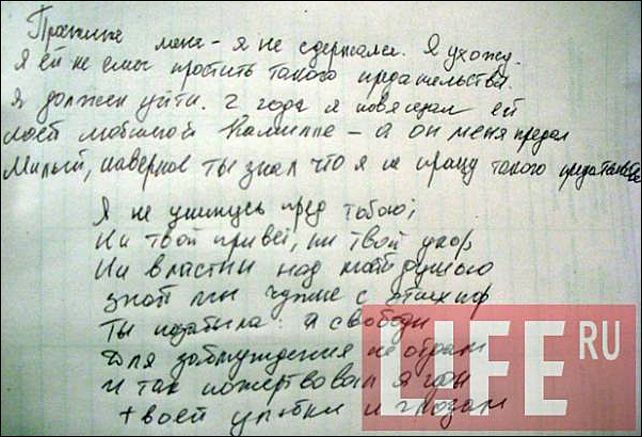 Простите меня - я не сдержался. Я ухожу.
Я ей не смог простить такого предательства.
Я должен уйти. 2 года я посвящал ей
моей любимой Камилле - а он меня предал
Милый, наверное ты знал что я не прощу такого предательства
Я не унижусь пред тобою;
Ни твой привет, ни твой укор
Не властны над моей душою
знай мы чужие с этих пор
Ты позабыла: я свободы
Для заблужденья не отдам
И так пожертвовал я годы
твоей улыбке и глазам
LIFE RU